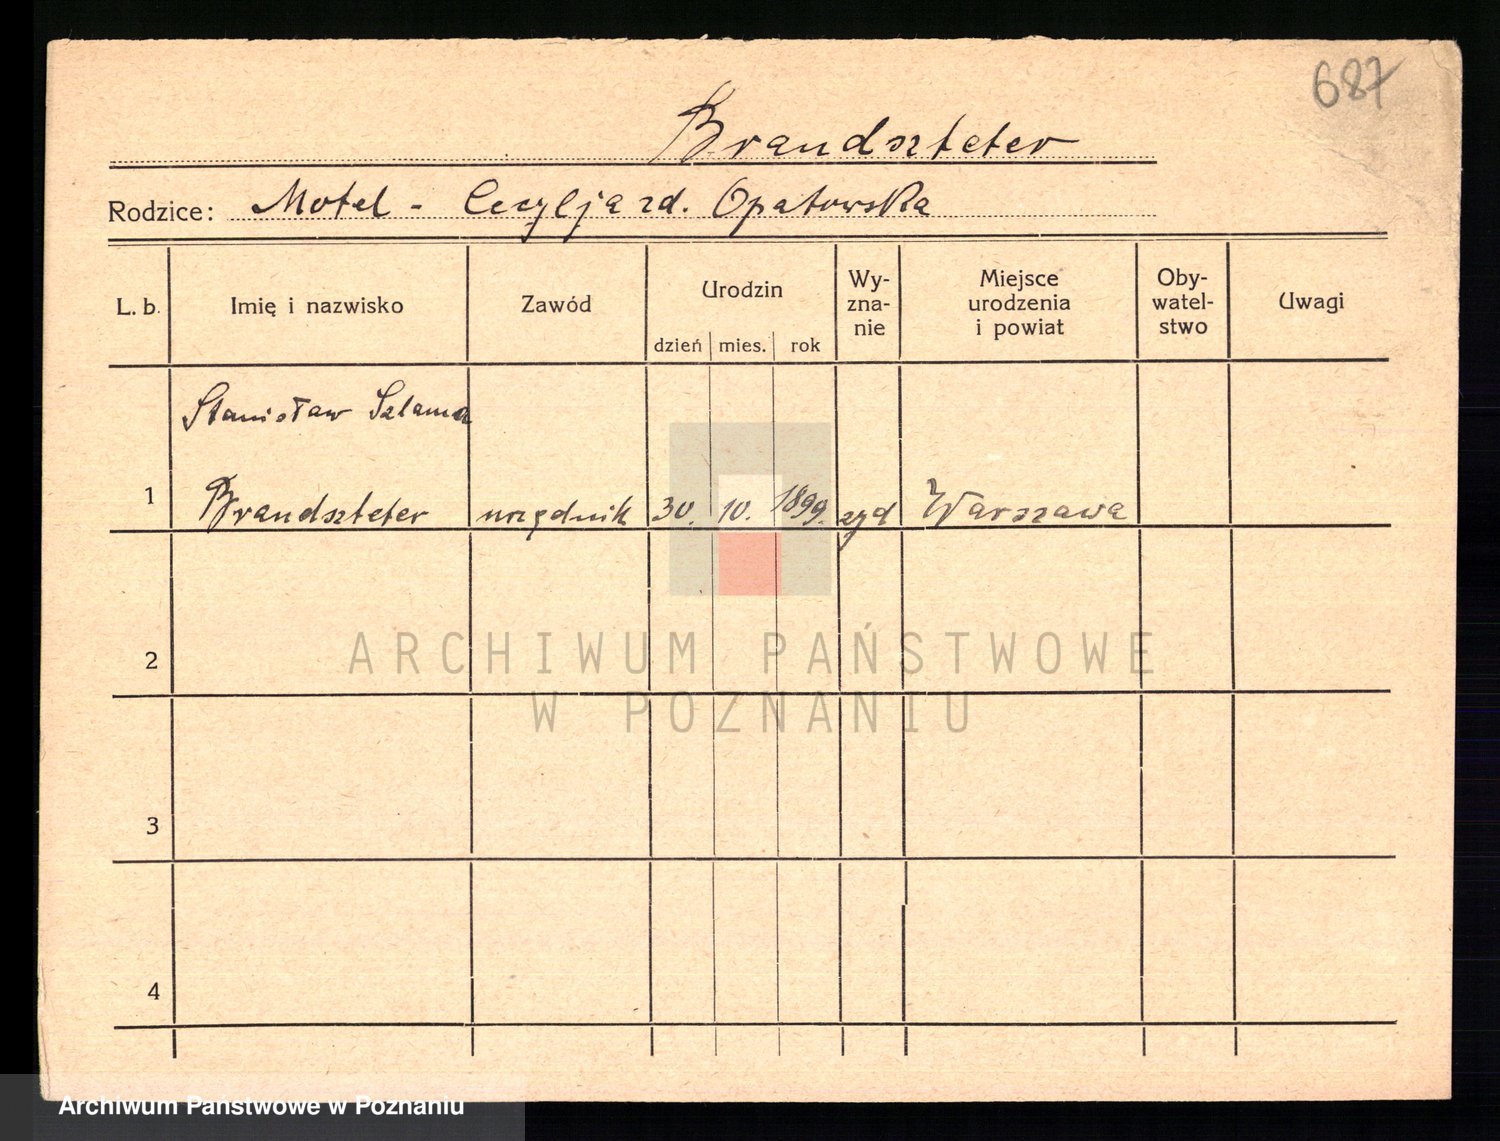 687
Brandszteter
Rodzice: Motel - Cecylja zd. Opatowska
L. b. Imię i nazwisko Zawód Urodzin dzień mies. rok Wy-
zna-
nie Miejsce
urodzenia
i powiat Oby-
watel-
stwo Uwagi
Stanisław Szlama
1 Brandszteter urzędnik 30. 10. 1899. żyd Warszawa
2
ARCHIWUM PAŃSTWOWE
W POZNANIU
3
4
Archiwum Państwowe w Poznaniu